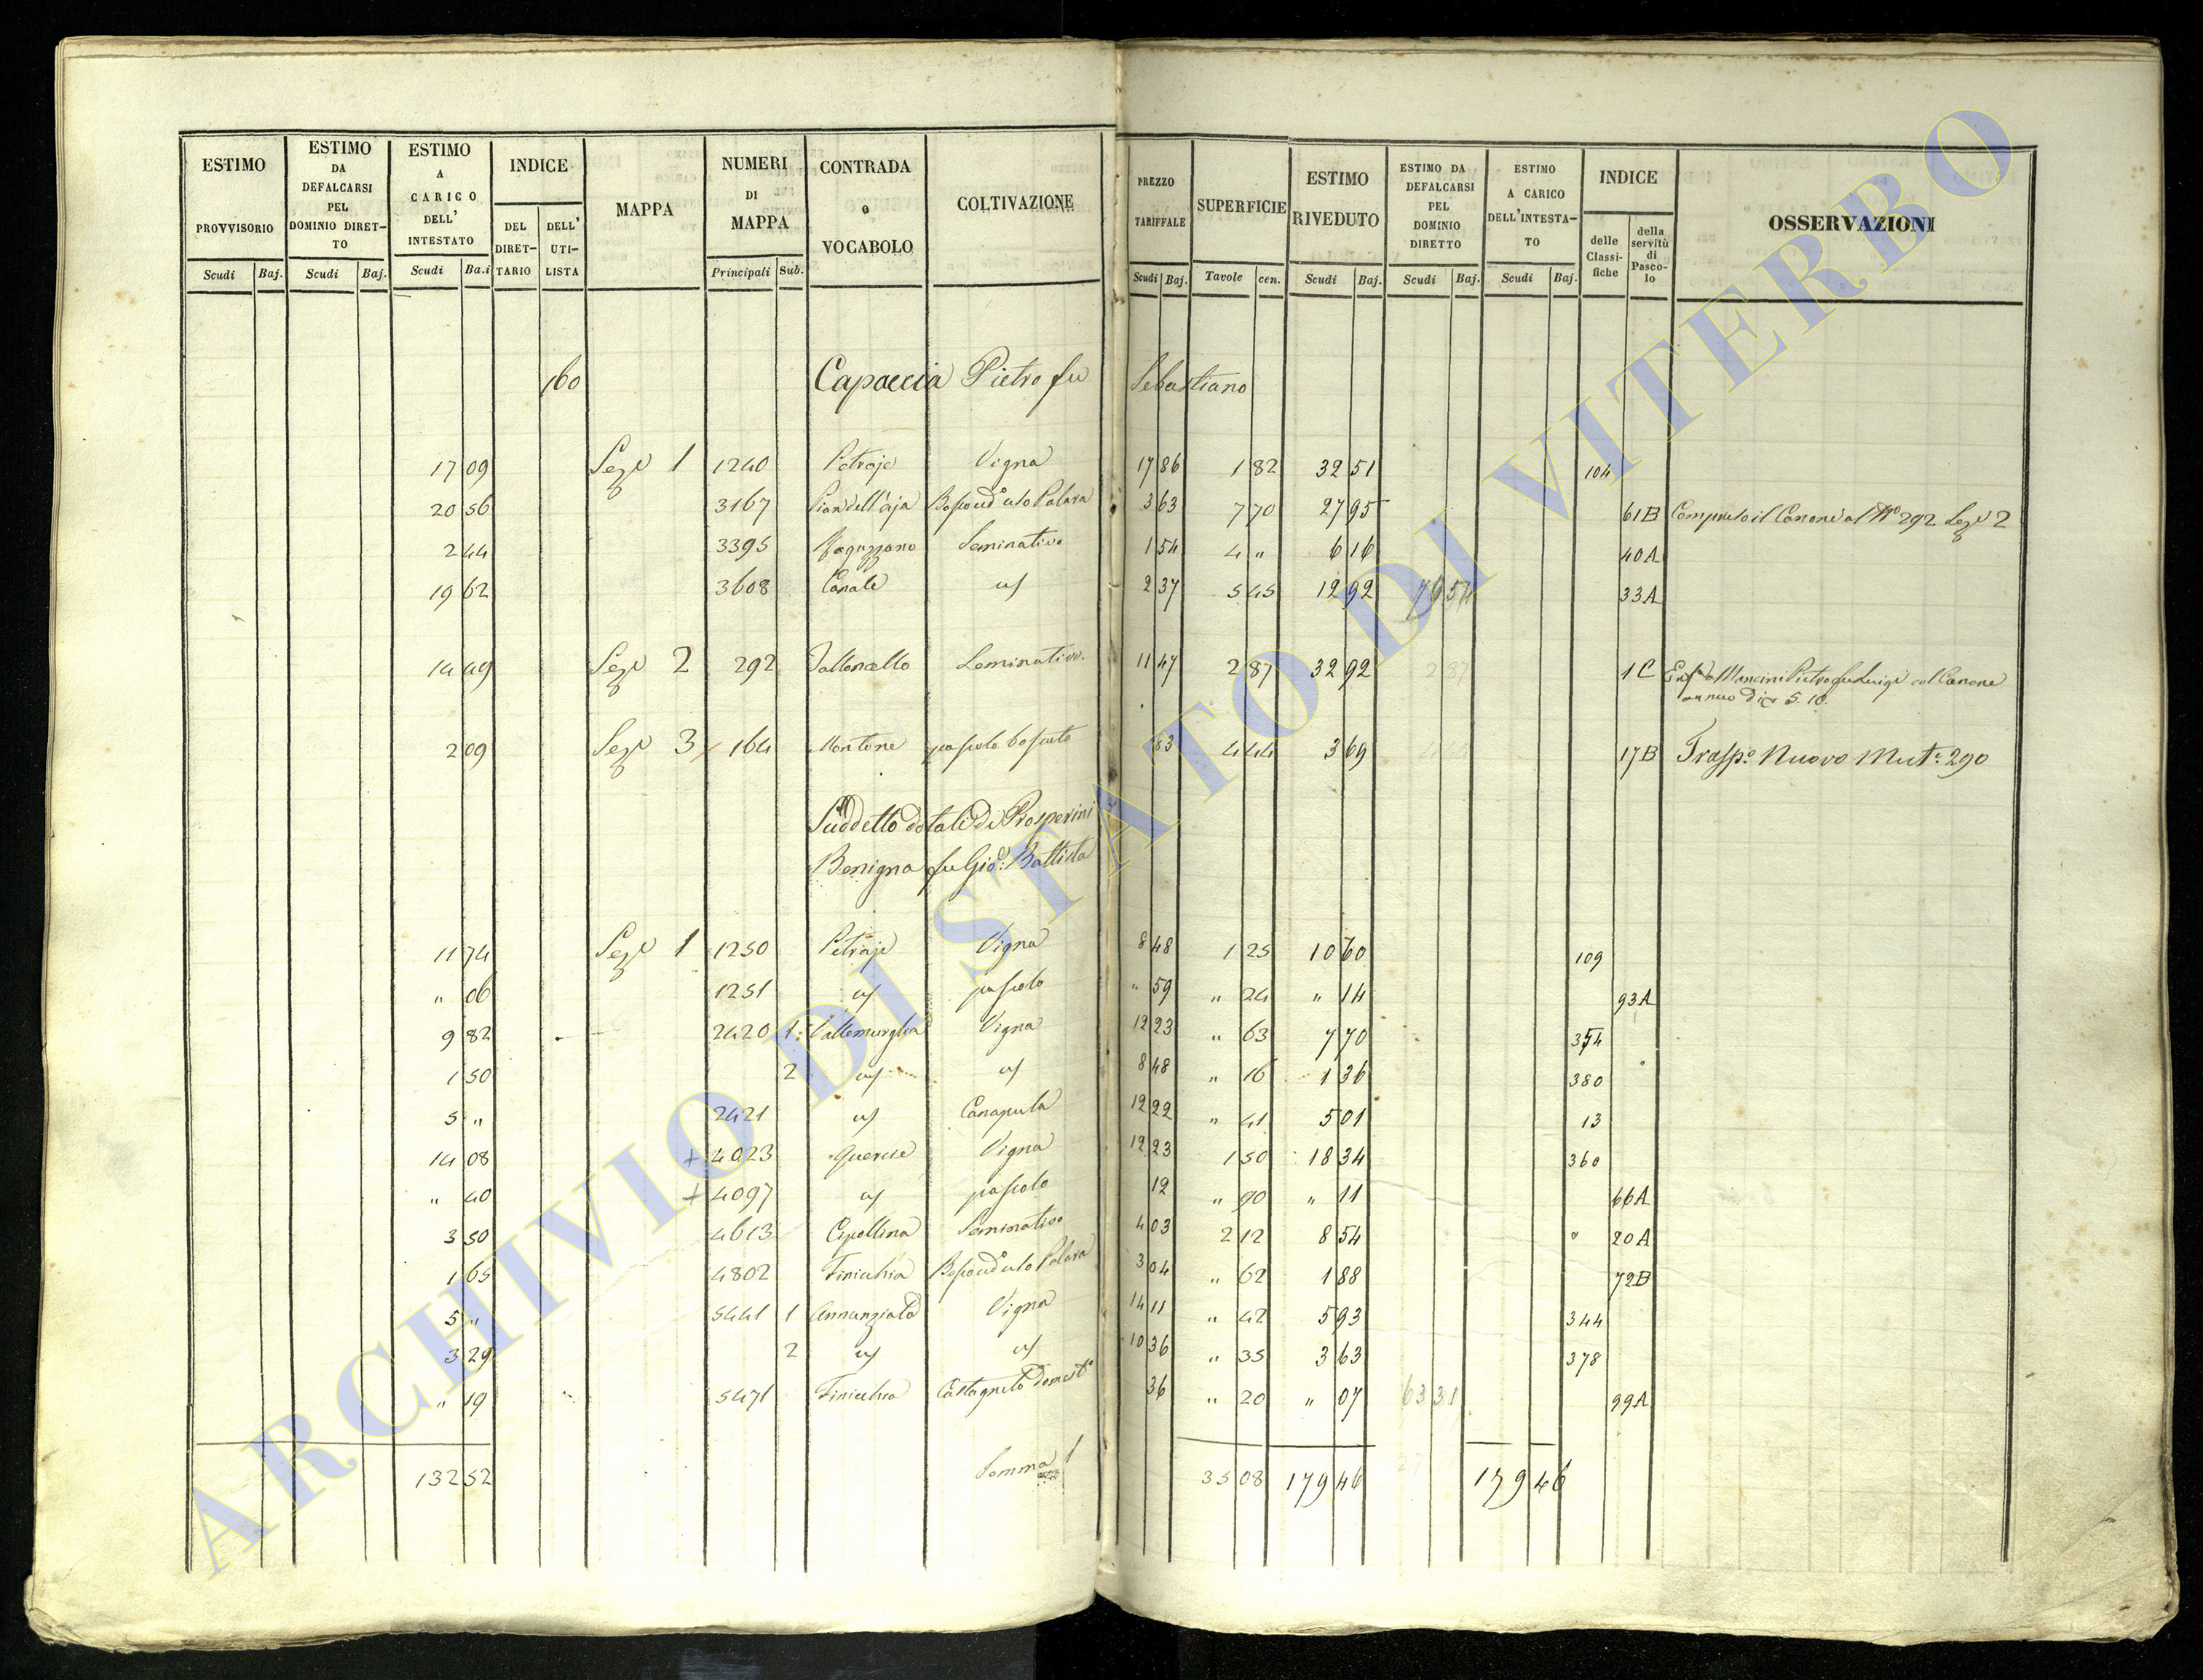 ESTIMO PROVVISORIO Scudi Baj.
ESTIMO DA DEFALCARSI PEL DOMINIO DIRETTO Scudi Baj.
ESTIMO A CARICO DELL' INTESTATO Scudi Ba.i
INDICE DEL DIRETTARIO DELL' UTILISTA
MAPPA
NUMERI DI MAPPA Principali Sub.
CONTRADA o VOCABOLO
COLTIVAZIONE
PREZZO TARIFFALE Scudi Baj.
SUPERFICIE Tavole cen.
ESTIMO RIVEDUTO Scudi Baj.
ESTIMO DA DEFALCARSI PEL DOMINIO DIRETTO Scudi Baj.
ESTIMO A CARICO DELL'INTESTATO Scudi Baj.
INDICE delle Classifiche della servitù di Pascolo
OSSERVAZIONI
160 Capaccia Pietro fu Sebastiano
17 09 Sez.e 1 1240 Petraje Vigna 17 86 1 82 32 51 104
20 56 3167 Pian dell'aja 3 63 7 70 27 95 61B Compreso il Canone al N° 292 Sez.e 2
2 44 3395 Seminativo 1 54 4 " 6 16 40A
19 62 3608 Canale 2 37 5 45 12 92 76 54 33A
14 49 Sez.e 2 292 Valloncello Seminativo 11 47 2 87 32 92 2 87 1C Enf.a a Mancini Pietro fu Luigi col Canone
annuo di 5.10
2 09 Sez.e 3 164 Montone pascolo boscato 83 4 44 3 69 17B Trasp.o Nuovo Mut.e 290
Suddetto dotali di Prosperini
Benigna fu Gio: Battista
11 74 Sez.e 1 1250 Petraje Vigna 8 48 1 25 10 60 109
" 06 1251 pascolo " 59 " 24 " 14 93A
9 82 2420 1 Vallemuraglia Vigna 12 23 " 63 7 70 354
1 50 2 8 48 " 16 1 36 380
5 " 2421 Canapula 12 22 " 41 5 01 13
14 08 + 4023 Quercie Vigna 12 23 1 50 18 34 360
" 40 + 4097 pascolo 12 " 90 " 11 66A
3 50 4613 Cipollina Seminativo 4 03 2 12 8 54 20A
1 65 4802 Finicchia 3 04 " 62 1 88 72B
5 " 5441 1 Annunziata Vigna 14 11 " 42 5 93 344
3 29 2 10 36 " 35 3 63 378
" 19 5471 Finicchia Castagneto Domest.o 36 " 20 " 07 63 31 99A
132 52 Somma 35 08 179 46 179 46
ARCHIVIO DI STATO DI VITERBO